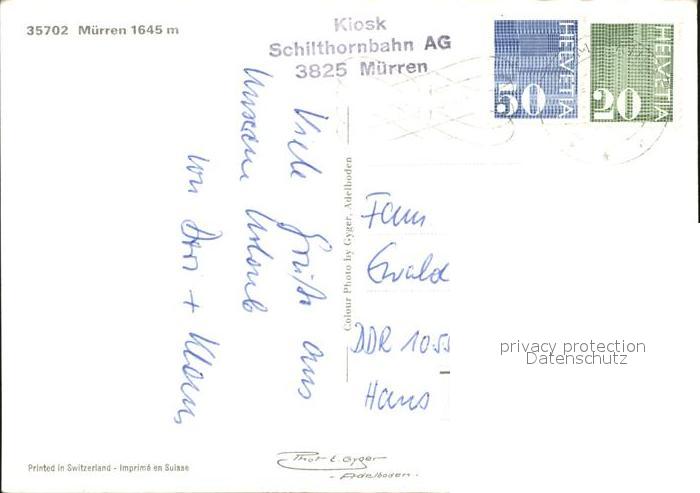 35702 Mürren 1645 m
Kiosk
Schilthornbahn AG
3825 Mürren
HELVETIA
50
HELVETIA
20
Viele Grüße aus
unserem Urlaub
von Dori + Klaus
Colour Photo by Gyger, Adelboden
Fam
Ewald
DDR 1055
Hans
privacy protection
Datenschutz
Printed in Switzerland - Imprimé en Suisse
Phot. E. Gyger
- Adelboden -